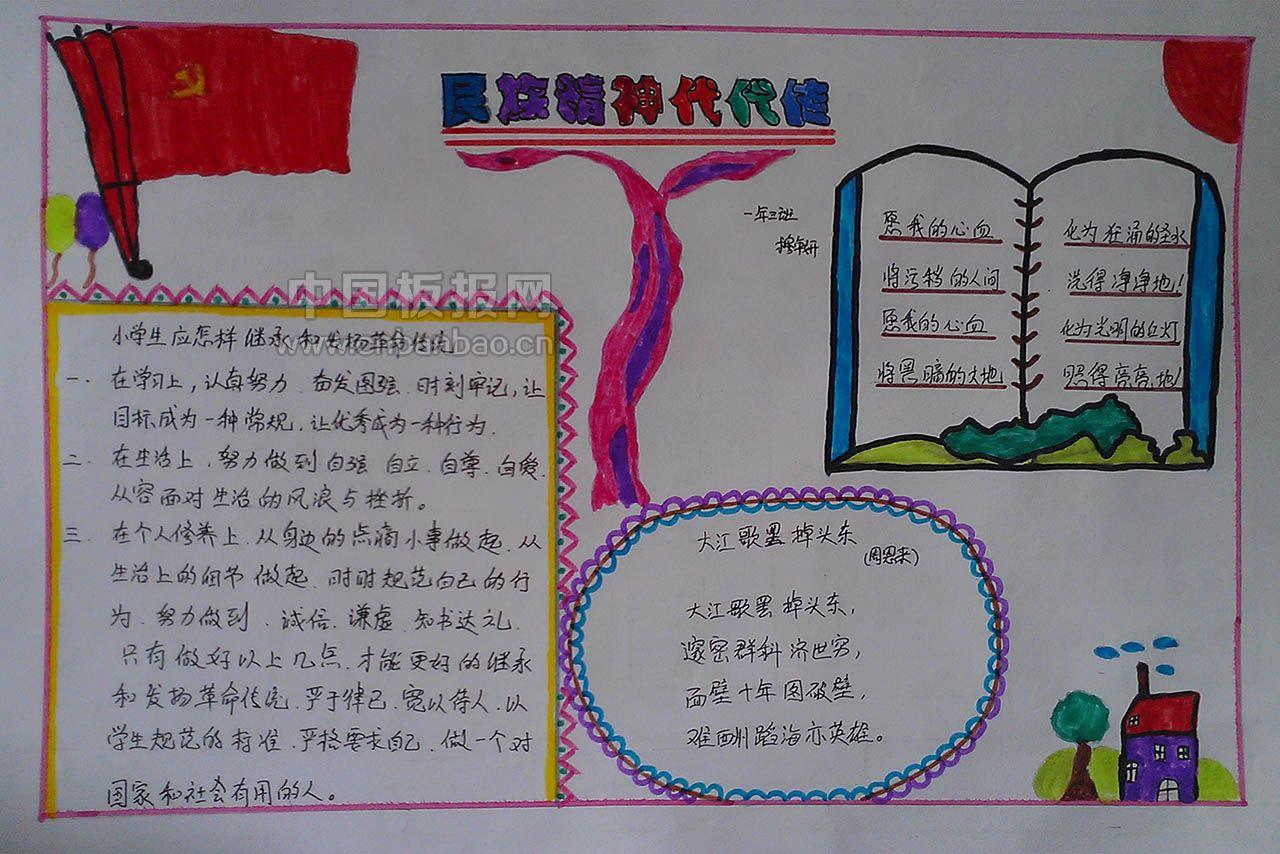 民族精神代代传
一年三班
愿我的心血
将污秽的人间
愿我的心血
将黑暗的大地
化为狂涌的圣水
洗得净净地!
化为光明的红灯
照得亮亮地!
中国板报网
小学生应怎样继承和发扬革命传统
一、在学习上,认真努力、奋发图强、时刻牢记,让
目标成为一种常规,让优秀成为一种行为.
二、在生活上,努力做到自强、自立、自尊、自爱,
从容面对生活的风浪与挫折。
三、在个人修养上,从身边的点滴小事做起、从
生活上的细节做起、时时规范自己的行
为、努力做到、诚信、谦虚、知书达礼、
只有做好以上几点,才能更好的继承
和发扬革命传统、严于律己、宽以待人、以
学生规范的标准、严格要求自己、做一个对
国家和社会有用的人。
大江歌罢掉头东
(周恩来)
大江歌罢掉头东,
邃密群科济世穷,
面壁十年图破壁,
难酬蹈海亦英雄。